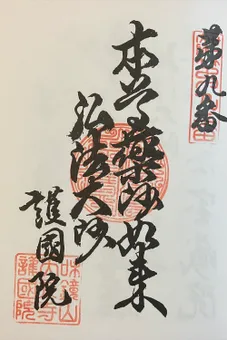 第九番
本尊薬師如来
弘法大師
護國院
味鏡山
天永寺
護國院